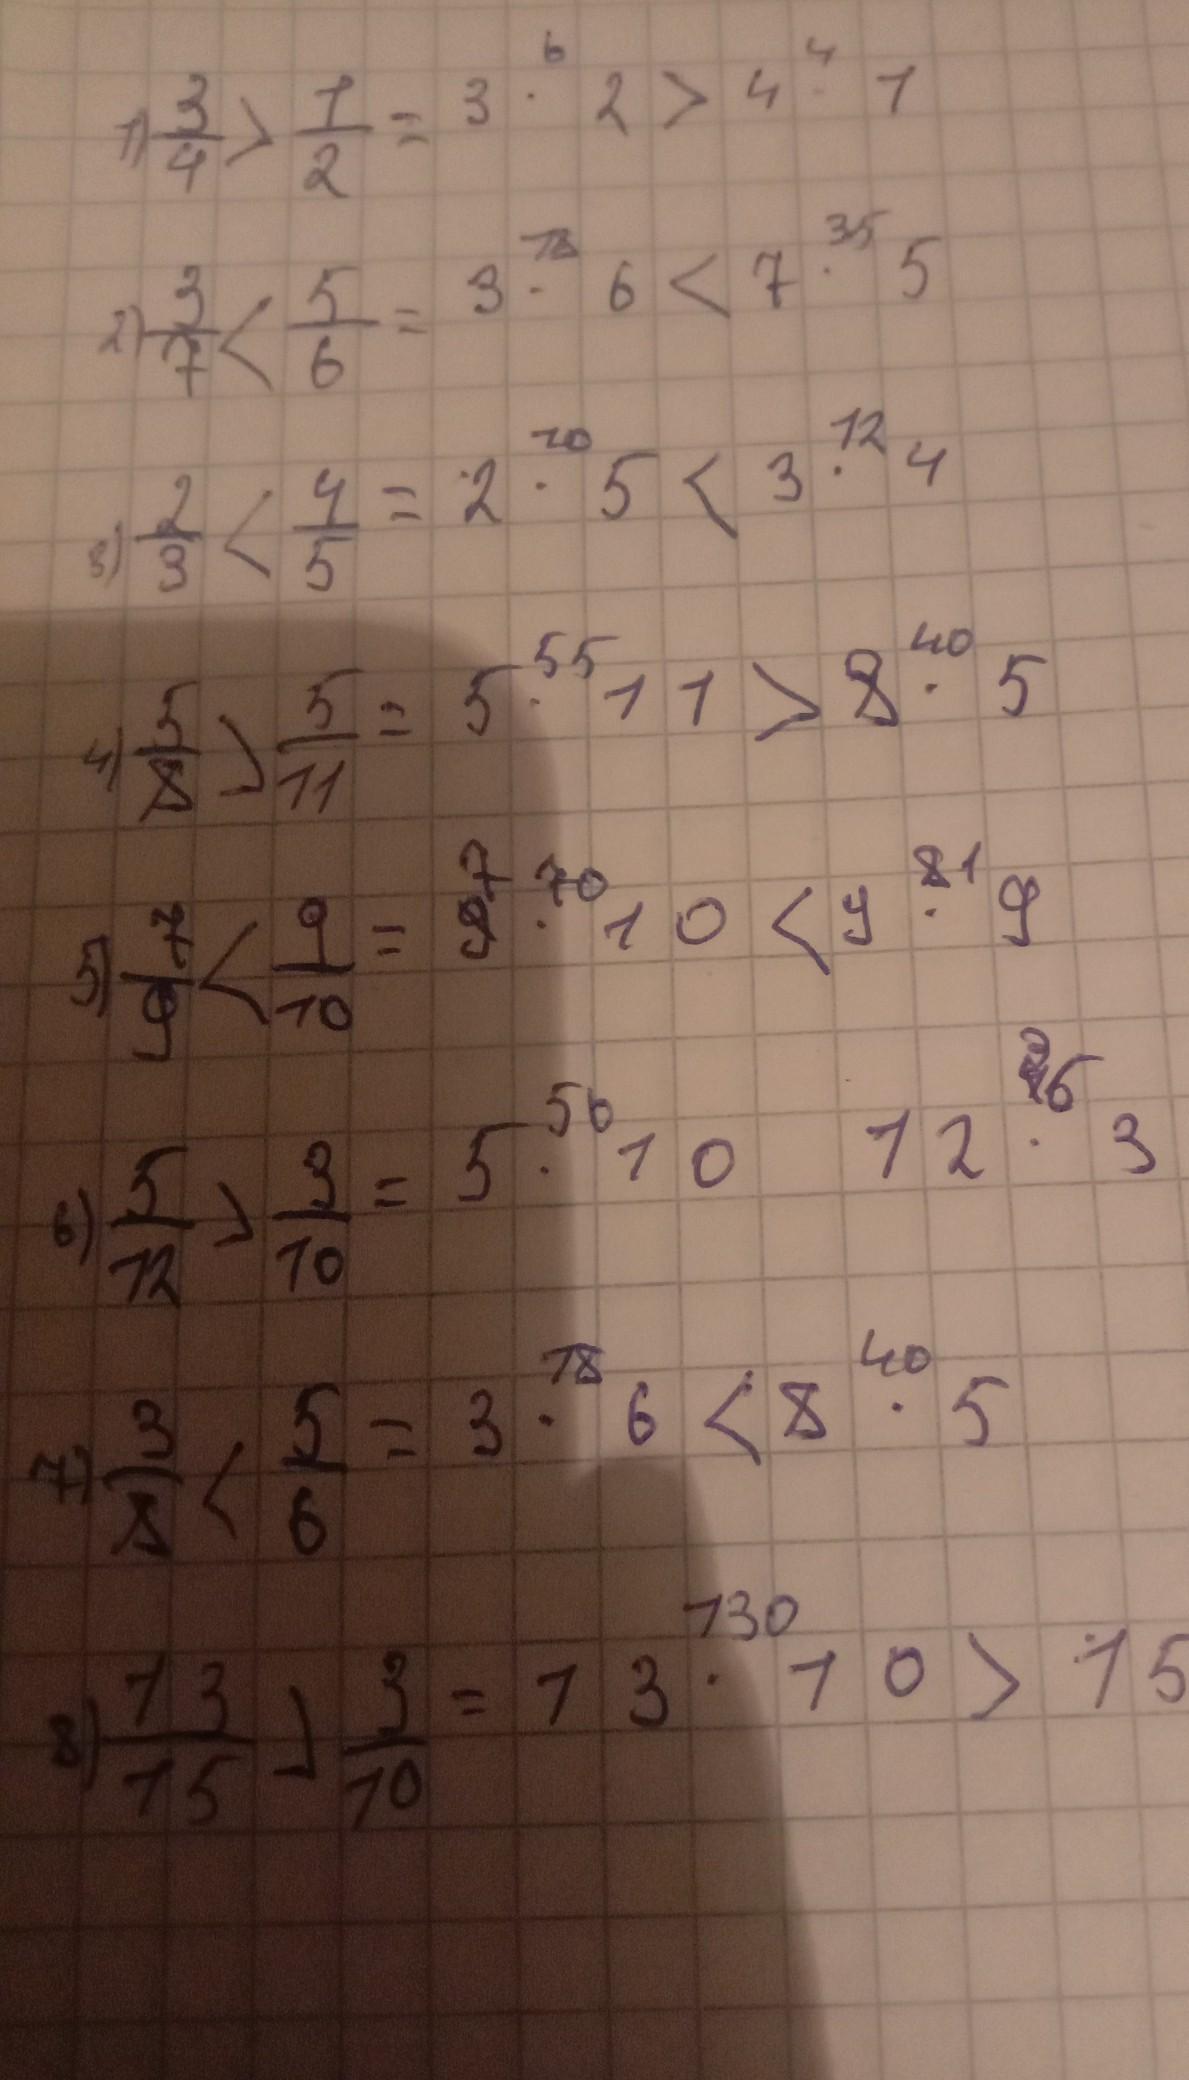 1) 3/4 > 1/2 = 3 ·⁶ 2 > 4 ·⁴ 1
2) 3/7 < 5/6 = 3 ·¹⁸ 6 < 7 ·³⁵ 5
3) 2/3 < 4/5 = 2 ·¹⁰ 5 < 3 ·¹² 4
4) 5/8 > 5/11 = 5 ·⁵⁵ 11 > 8 ·⁴⁰ 5
5) 7/9 < 9/10 = 7 ·⁷⁰ 10 < 9 ·⁸¹ 9
6) 5/12 > 3/10 = 5 ·⁵⁰ 10 12 ·³⁶ 3
7) 3/8 < 5/6 = 3 ·¹⁸ 6 < 8 ·⁴⁰ 5
8) 13/15 > 3/10 = 13 ·¹³⁰ 10 > 15